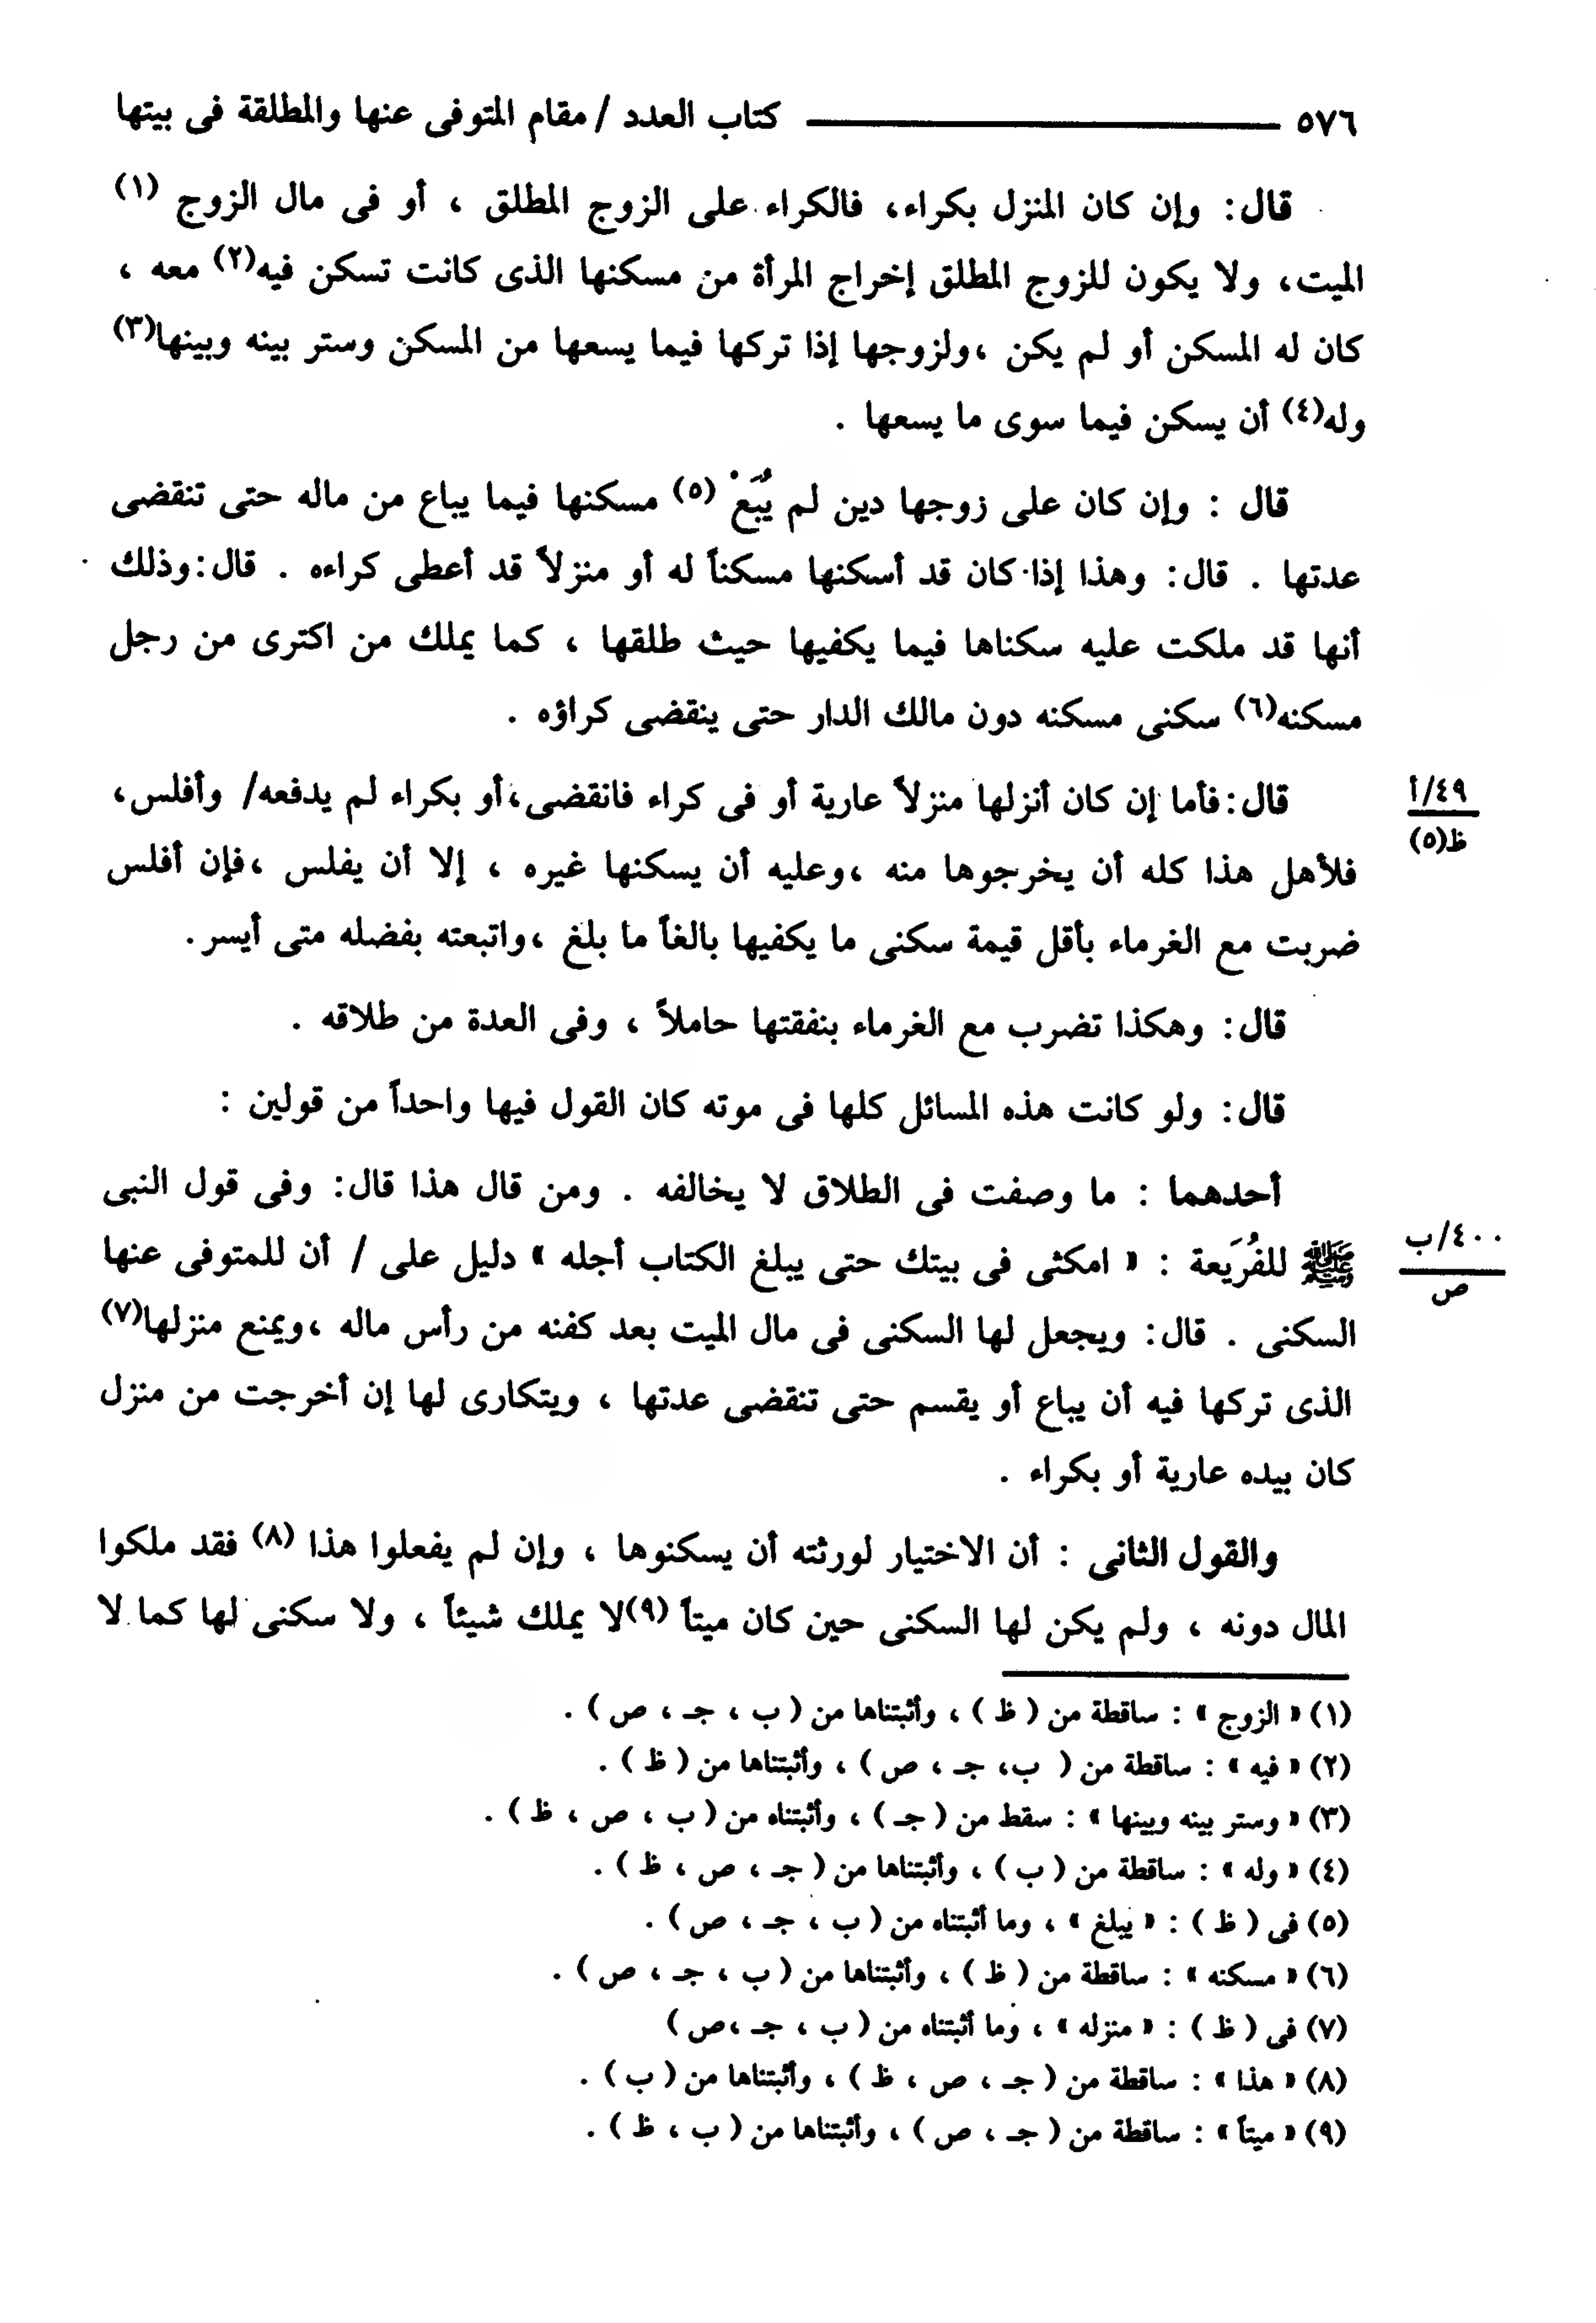 ٥٧٦ ــــــــــــــ كتاب العدد / مقام المتوفى عنها والمطلقة فى بيتها
قال: وإن كان المنزل بكراء، فالكراء على الزوج المطلق ، أو فى مال الزوج (١)
الميت، ولا يكون للزوج المطلق إخراج المرأة من مسكنها الذى كانت تسكن فيه(٢) معه ،
كان له المسكن أو لم يكن ،ولزوجها إذا تركها فيما يسعها من المسكن وستر بينه وبينها(٣)
وله(٤) أن يسكن فيما سوى ما يسعها .
قال : وإن كان على زوجها دين لم يُبَعْ (٥) مسكنها فيما يباع من ماله حتى تنقضى
عدتها . قال: وهذا إذا كان قد أسكنها مسكناً له أو منزلاً قد أعطى كراءه . قال:وذلك
أنها قد ملكت عليه سكناها فيما يكفيها حيث طلقها ، كما يملك من اكترى من رجل
مسكنه(٦) سكنى مسكنه دون مالك الدار حتى ينقضى كراؤه .
قال:فأما إن كان أنزلها منزلاً عارية أو فى كراء فانقضى،أو بكراء لم يدفعه/ وأفلس،
٤٩/أ
ظ(٥)
فلأهل هذا كله أن يخرجوها منه ،وعليه أن يسكنها غيره ، إلا أن يفلس ،فإن أفلس
ضربت مع الغرماء بأقل قيمة سكنى ما يكفيها بالغاً ما بلغ ،واتبعته بفضله متى أيسر.
قال: وهكذا تضرب مع الغرماء بنفقتها حاملاً ، وفى العدة من طلاقه .
قال: ولو كانت هذه المسائل كلها فى موته كان القول فيها واحداً من قولين :
أحدهما : ما وصفت فى الطلاق لا يخالفه . ومن قال هذا قال: وفى قول النبى
ﷺ للفُرَيعة : « امكثى فى بيتك حتى يبلغ الكتاب أجله » دليل على / أن للمتوفى عنها
٤٠٠/ب
ص
السكنى . قال: ويجعل لها السكنى فى مال الميت بعد كفنه من رأس ماله ،ويمنع منزلها(٧)
الذى تركها فيه أن يباع أو يقسم حتى تنقضى عدتها ، ويتكارى لها إن أخرجت من منزل
كان بيده عارية أو بكراء .
والقول الثانى : أن الاختيار لورثته أن يسكنوها ، وإن لم يفعلوا هذا (٨) فقد ملكوا
المال دونه ، ولم يكن لها السكنى حين كان ميتاً (٩)لا يملك شيئاً ، ولا سكنى لها كما لا
(١) « الزوج » : ساقطة من ( ظ ) ، وأثبتناها من ( ب ، جـ ، ص ) .
(٢) « فيه » : ساقطة من ( ب، جـ ، ص ) ، وأثبتناها من ( ظ ) .
(٣) « وستر بينه وبينها » : سقط من ( جـ ) ، وأثبتناه من ( ب ، ص ، ظ ) .
(٤) « وله » : ساقطة من ( ب ) ، وأثبتناها من ( جـ ، ص ، ظ ) .
(٥) فى ( ظ ) : « يبلغ » ، وما أثبتناه من ( ب ، جـ ، ص ) .
(٦) « مسكنه » : ساقطة من ( ظ ) ، وأثبتناها من ( ب ، جـ ، ص ) .
(٧) فى ( ظ ) : « منزله » ، وما أثبتناه من ( ب ، جـ ،ص )
(٨) « هذا » : ساقطة من ( جـ ، ص ، ظ ) ، وأثبتناها من ( ب ) .
(٩) « ميتاً » : ساقطة من ( جـ ، ص ) ، وأثبتناها من ( ب ، ظ ) .